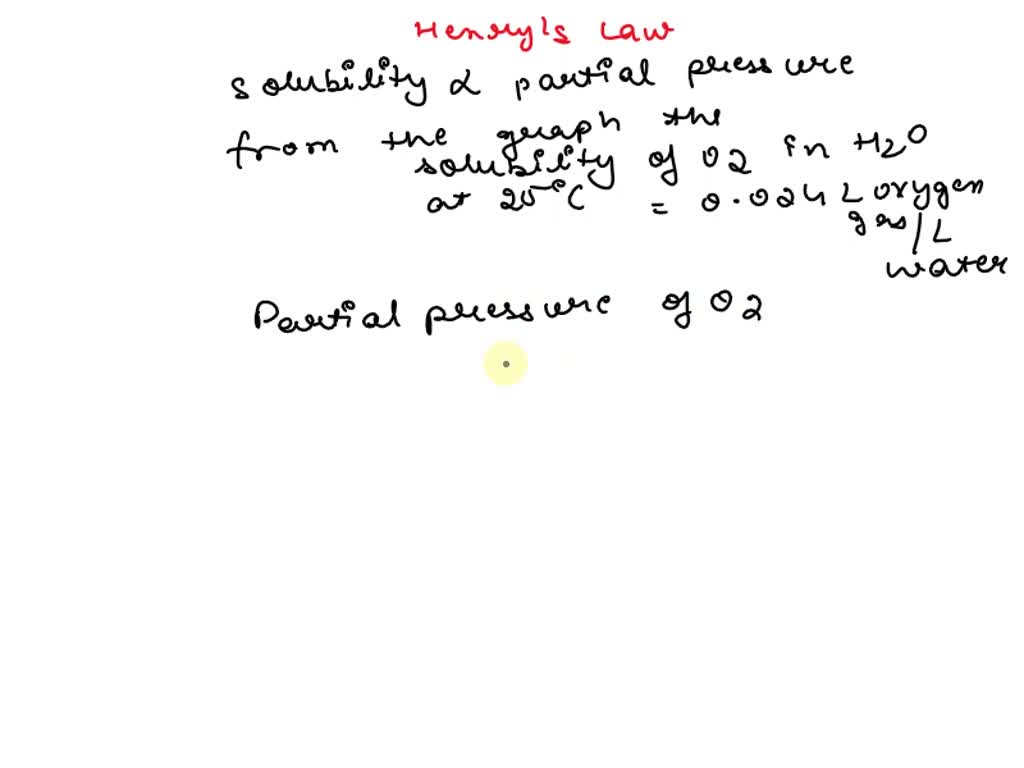 Henry's Law
solubility α partial pressure
from the graph the
solubility of O2 in H2O
at 20°C = 0.024 L oxygen
gas/L
water
Partial pressure of O2